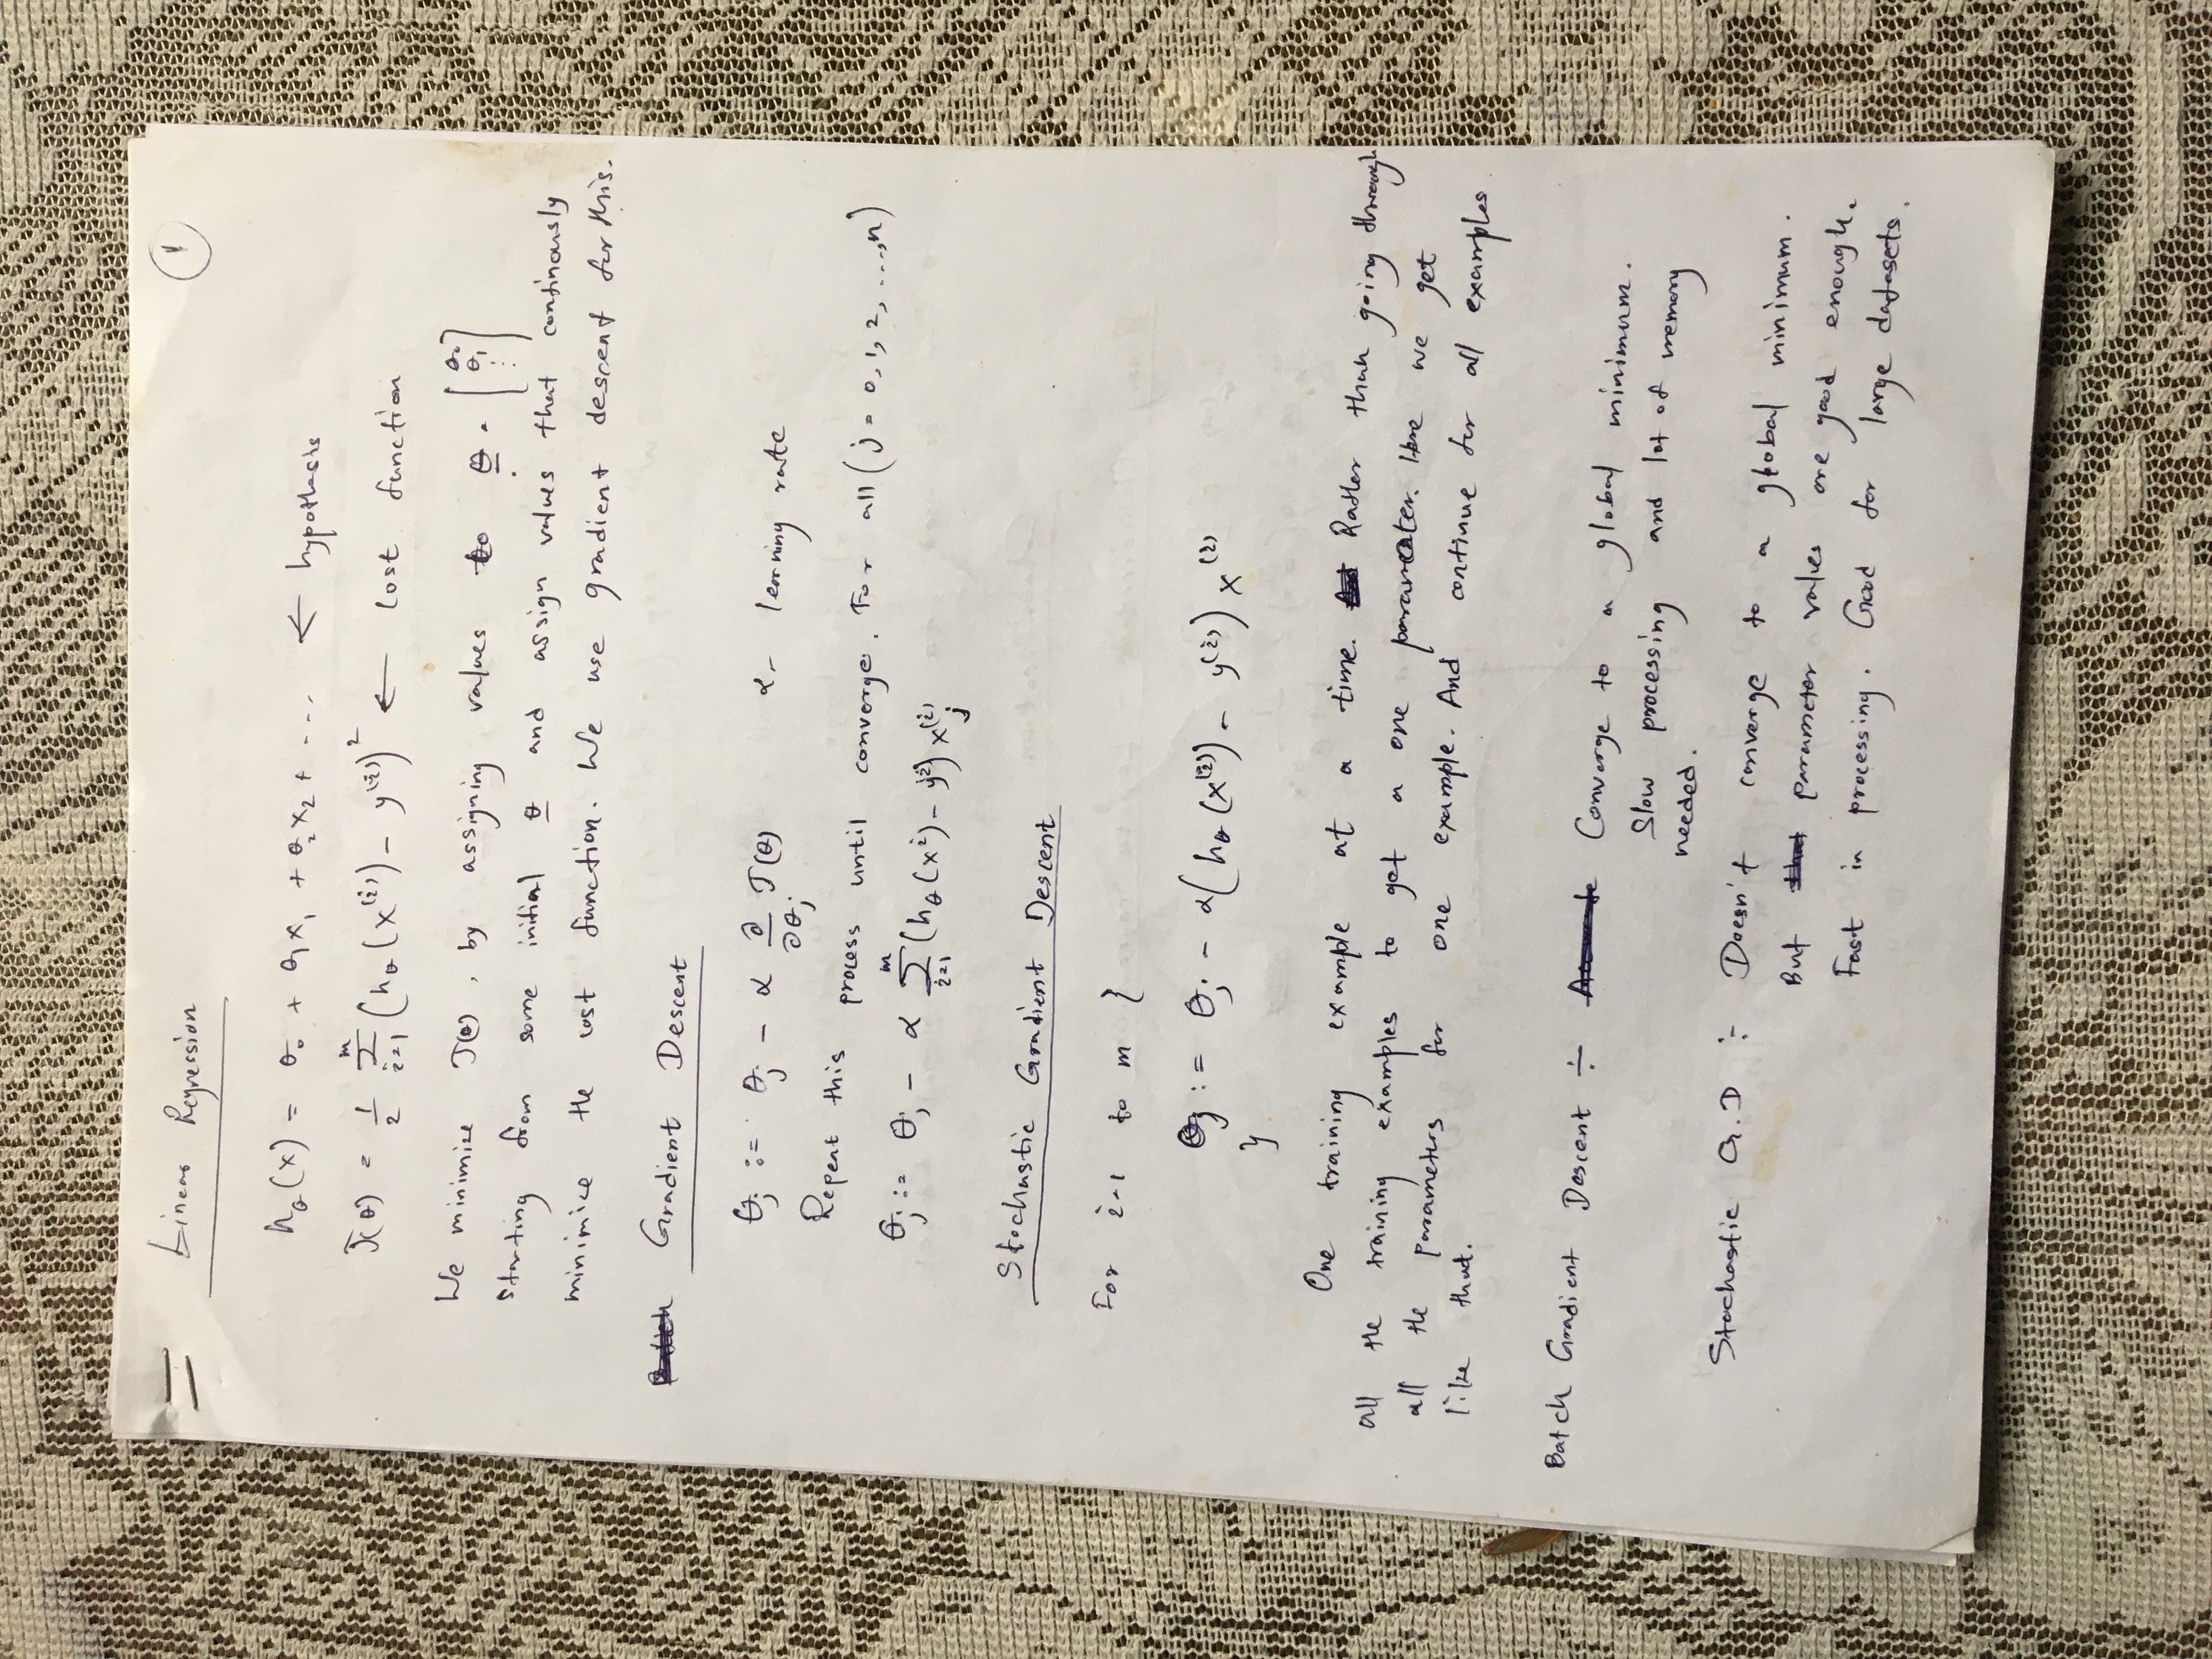 Linear Regression
1
hθ(x) = θ₀ + θ₁x₁ + θ₂x₂ + ... ← hypothesis
J(θ) = 1/2 Σ_{i=1}^{m} (hθ(x⁽ⁱ⁾) - y⁽ⁱ⁾)² ← cost function
We minimize J(θ), by assigning values to θ = [θ₀ θ₁ ⋮]
starting from some initial θ and assign values that continously
minimize the cost function. We use gradient descent for this.
Batch Gradient Descent
θⱼ := θⱼ - α ∂/∂θⱼ J(θ) α - learning rate
Repeat this process until converge. For all (j = 0, 1, 2, ..., n)
θⱼ := θⱼ - α Σ_{i=1}^{m} (hθ(xⁱ) - yⁱ) xⱼ⁽ⁱ⁾
Stochastic Gradient Descent
For i=1 to m {
θⱼ := θⱼ - α(hθ(x⁽ⁱ⁾) - y⁽ⁱ⁾) x⁽ⁱ⁾
}
One training example at a time. Rather than going through
all the training examples to get a one parameter. Here we get
all the parameters for one example. And continue for all examples
like that.
Batch Gradient Descent ÷ Accurate Converge to a global minimum.
Slow processing and lot of memory
needed.
Stochastic G.D ÷ Doesn't converge to a global minimum.
But that parameter values are good enough.
Fast in processing. Good for large datasets.